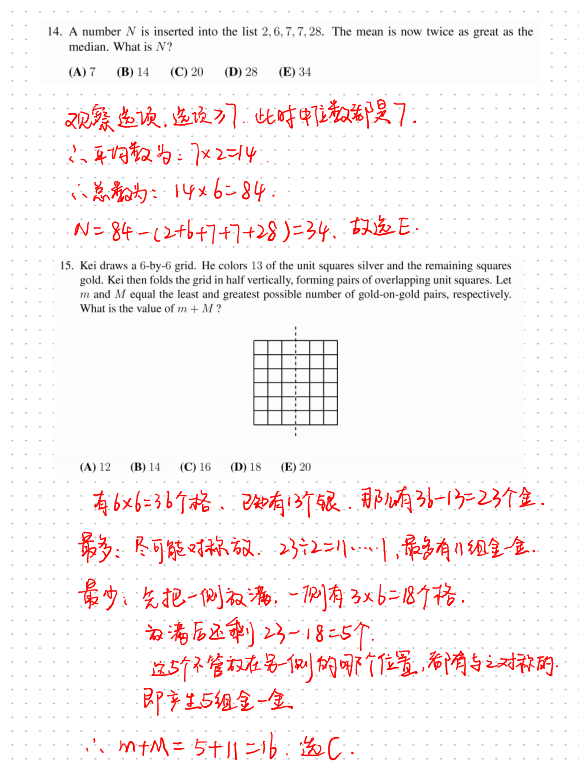 14. A number N is inserted into the list 2, 6, 7, 7, 28. The mean is now twice as great as the
median. What is N?
(A) 7 (B) 14 (C) 20 (D) 28 (E) 34
观察选项,选项≥7.此时中位数都是7.
∴平均数为:7×2=14.
∴总数为:14×6=84.
N=84-(2+6+7+7+28)=34. 故选E.
15. Kei draws a 6-by-6 grid. He colors 13 of the unit squares silver and the remaining squares
gold. Kei then folds the grid in half vertically, forming pairs of overlapping unit squares. Let
m and M equal the least and greatest possible number of gold-on-gold pairs, respectively.
What is the value of m + M ?
(A) 12 (B) 14 (C) 16 (D) 18 (E) 20
有6×6=36个格、已知有13个银.那么有36-13=23个金.
最多:尽可能对称放. 23÷2=11……1,最多有11组金-金.
最少:先把一侧放满,一侧有3×6=18个格.
放满后还剩23-18=5个.
这5个不管放在另一侧的哪个位置,都有与之对称的.
即产生5组金-金
∴ m+M=5+11=16. 选C.